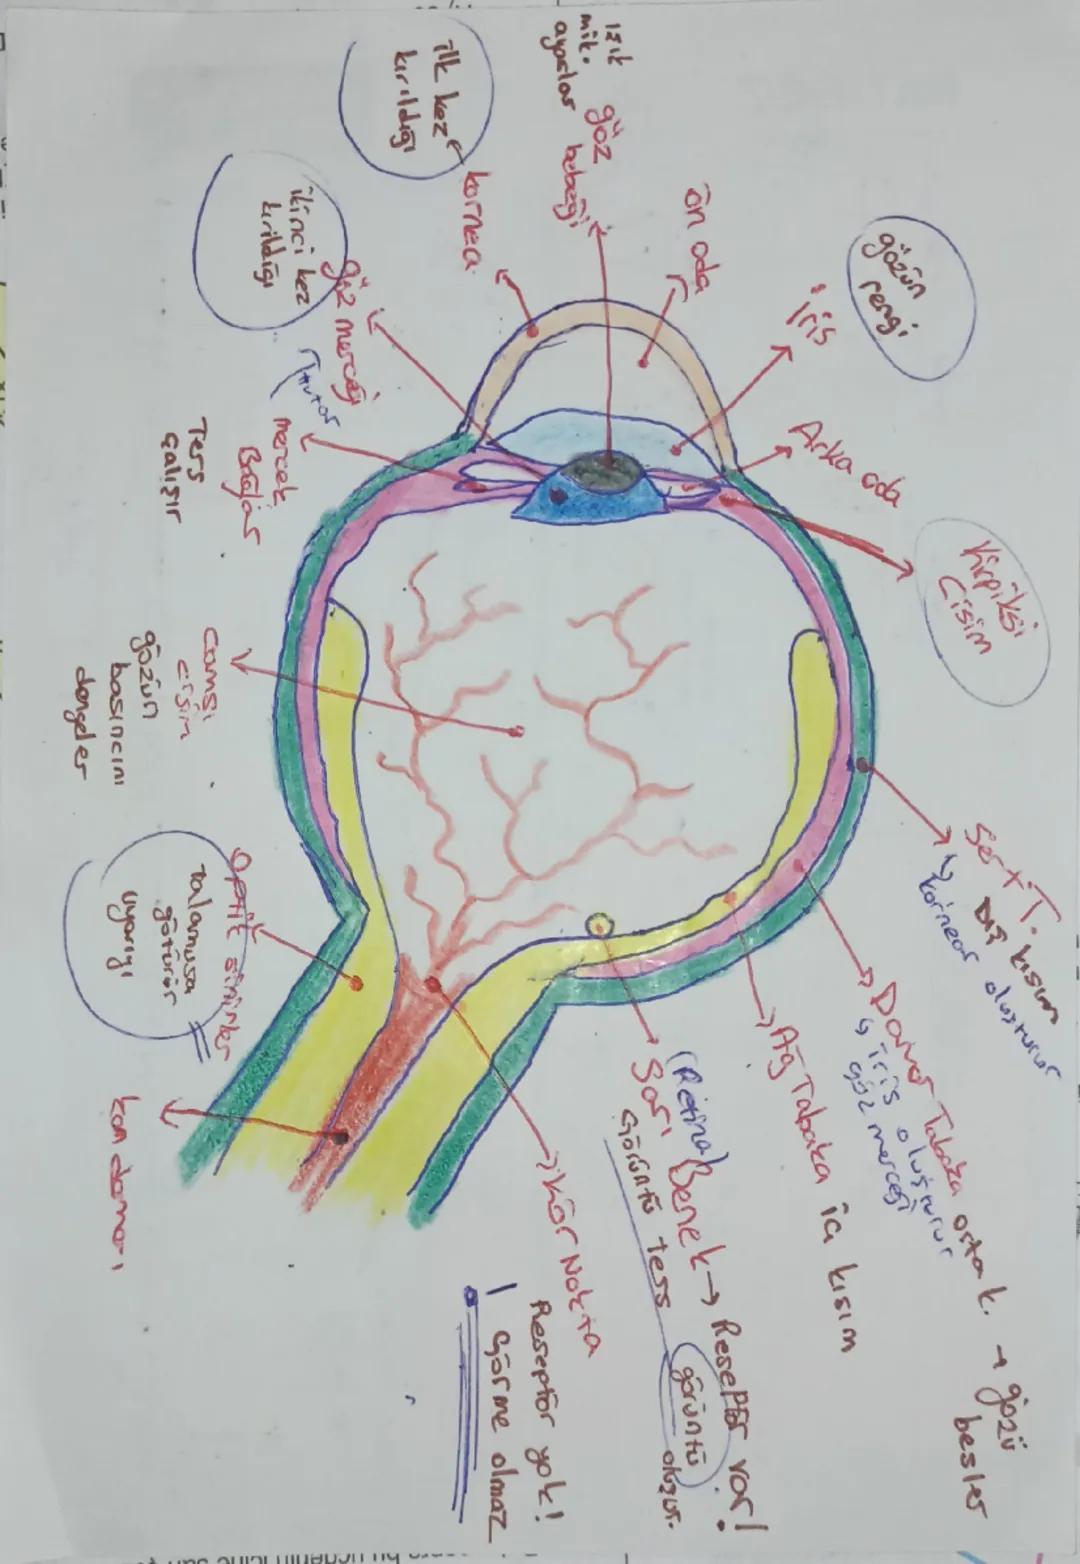 gözün
rengi
İris
Arka oda
Kirpiksi
Cisim
ön oda
ışık
mik.
ayarlar
göz
bebeği
ilk kez
kırıldığı
kornea
ikinci kez
kırıldığı
göz merceği
Tutar
mercek
Bağları
Ters
çalışır
Camsı
cisim
gözün
basıncını
dengeler
Optik sinirler
Talamusa
götürür
uyarıyı
kan damarı
Sert T.
Dış kısım
↳ korneayı oluşturur
Damar Tabaka orta k. → gözü
besler
↳ İris oluşturur
göz merceği
Ağ Tabaka iç kısım
(Retina)
Sarı Benek → Reseptör var!
Görüntü ters
görüntü
oluşur.
Kör Nokta
Reseptör yok!
Görme olmaz